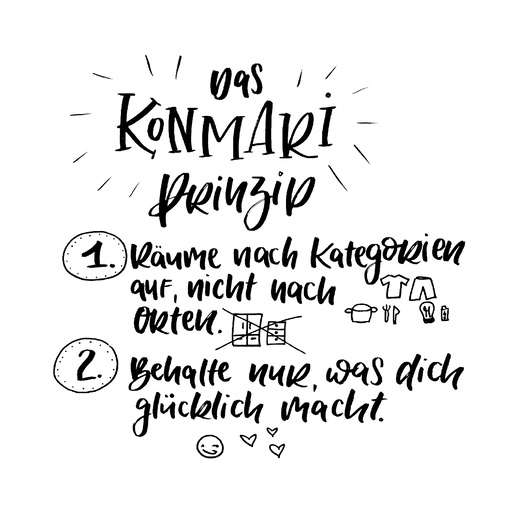 Das
KONMARI
Prinzip
1. Räume nach Kategorien
auf, nicht nach
Orten.
2. Behalte nur, was dich
glücklich macht.